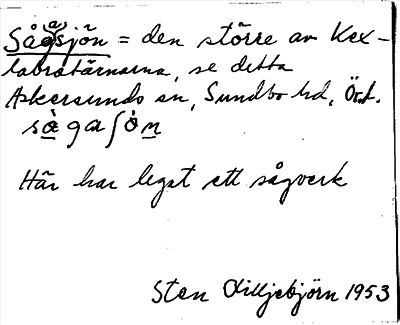 Såg(a)sjön = den större av Kex-
labrotärnarna, se detta
Askersunds sn, Sundbo hd, Ör.l.
sà̱gaʃòṉ
Här har legat ett sågverk
Sten Lilljebjörn 1953